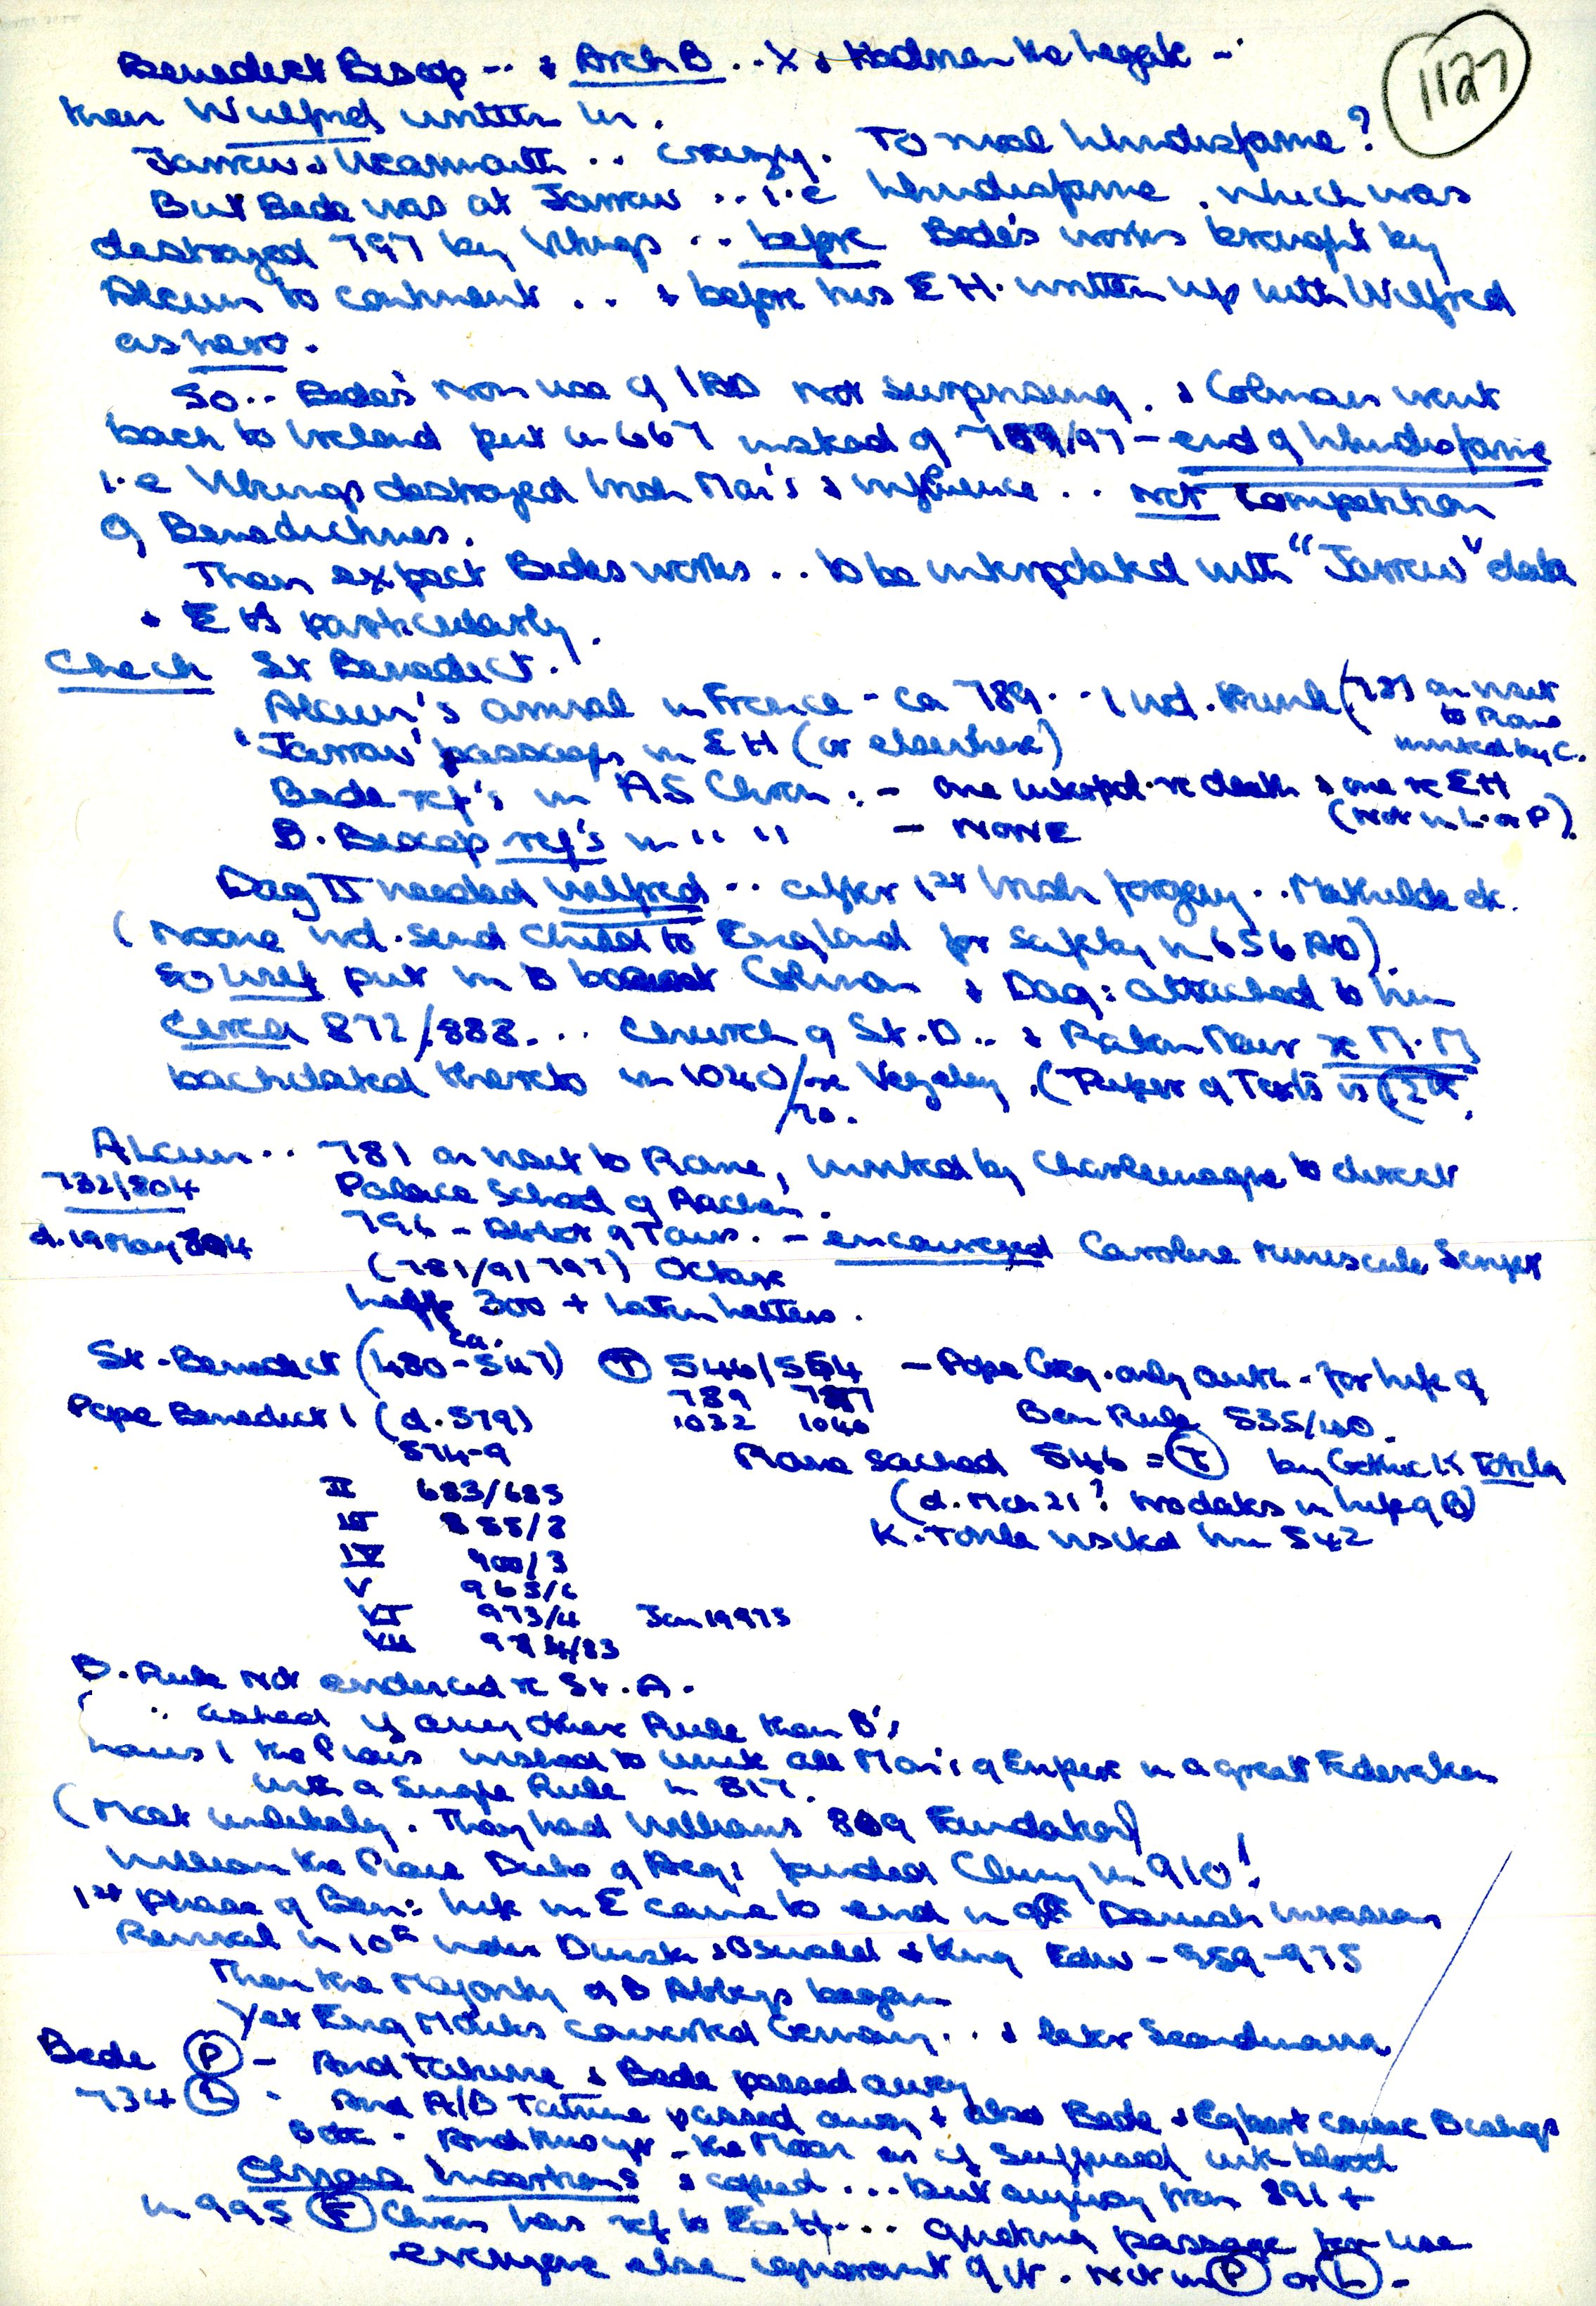 1127
Benedict Biscop -- & Arch B. .. X & Hadrian the legate -
then Wilfred written in.
Jarrow & Wearmouth .. crazy. To rival Lindisfarne?
But Bede was at Jarrow .. i.e Lindisfarne, which was
destroyed 797 by Vikings .. before Bede's works brought by
Alcuin to continent .. & before his E H. written up with Wilfred
as hero.
So .. Bede's non use of 1 AD not surprising. & Colman went
back to Ireland put in 667 instead of 789/97 - end of Lindisfarne
i.e Vikings destroyed Irish Mon's & influence .. not Competition
of Benedictines.
Then expect Bedes works .. to be interpolated with "Jarrow" data
& E H particularly.
Check St Benedict.
Alcuin's arrival in France - ca 789 .. I wd. think (781 on visit
to Rome
invited by C.
'Jarrow' passages in E H (or elsewhere)
Bede ref's in AS Chron: - one interpol. re death & one re EH
(Not in L. or P).
B. Biscop ref's in " " - NONE
Dag II needed Wilfred .. after 1st Irish forgery .. Mathilde etc.
(Noone wd. send child to England for safety in 656 AD)
So Wilf put in to Colman & Dag: attached to him
Circa 872/888 ... Church of St. D .. & Raban Maur re M.M
backdated thereto in 1040/ re Vezelay. (Peter of Tours is 12th.
70.
Alcuin .. 781 on visit to Rome, invited by Charlemagne to direct
732/804 Palace School of Aachen.
796 - Abbot of Tours. - encouraged Caroline minuscule Script
d. 19 May 804
(781/91 797)
left 300 + Latin letters.
St. Benedict (480 - ca. 547) (T) 546/554 - Pope Greg. only auth. for life of
789 797
Pope Benedict I (d. 579) 1032 1040 Ben Rule 535/40.
574-9 Rome sacked 546 = (T) by Gothic K Totila
II 683/685 (d. Mch 21? No dates in life of B)
III 855/8 K. Totila visited him 542
IV 900/3
V 965/6
VI 973/4 Jan 19 973
VII 974/83
B. Rule not evidenced re St. A.
(.. asked if any other Rule than B's,
Louis I the Pious wished to unite all Mon's of Empire in a great Federation
with a Single Rule in 817.
(Most unlikely. They had Williams 809 Foundation)
William the Pious Duke of Aq: founded Cluny in 910!
1st phase of Ben: life in E came to end in 9th Danish invasions
Revival in 10th under Dunst & Oswald & King Edw - 959-975
Then the Majority of B Abbeys began
Yet Eng Monks converted Germany ... & later Scandinavia
Bede (P) - And Tatwine & Bede passed away
734 (L) - And A/B Tatwine passed away & also Bede & Egbert cons Bishop
Both - And this yr - the Moon as if suffused with blood
Obvious Insertions & copied ... but anyway from 891 +
In 995 (F) Chron has ref to Ecc H ... quoting passage for use
everyone else ignorant of it. Not in (P) or (L) -